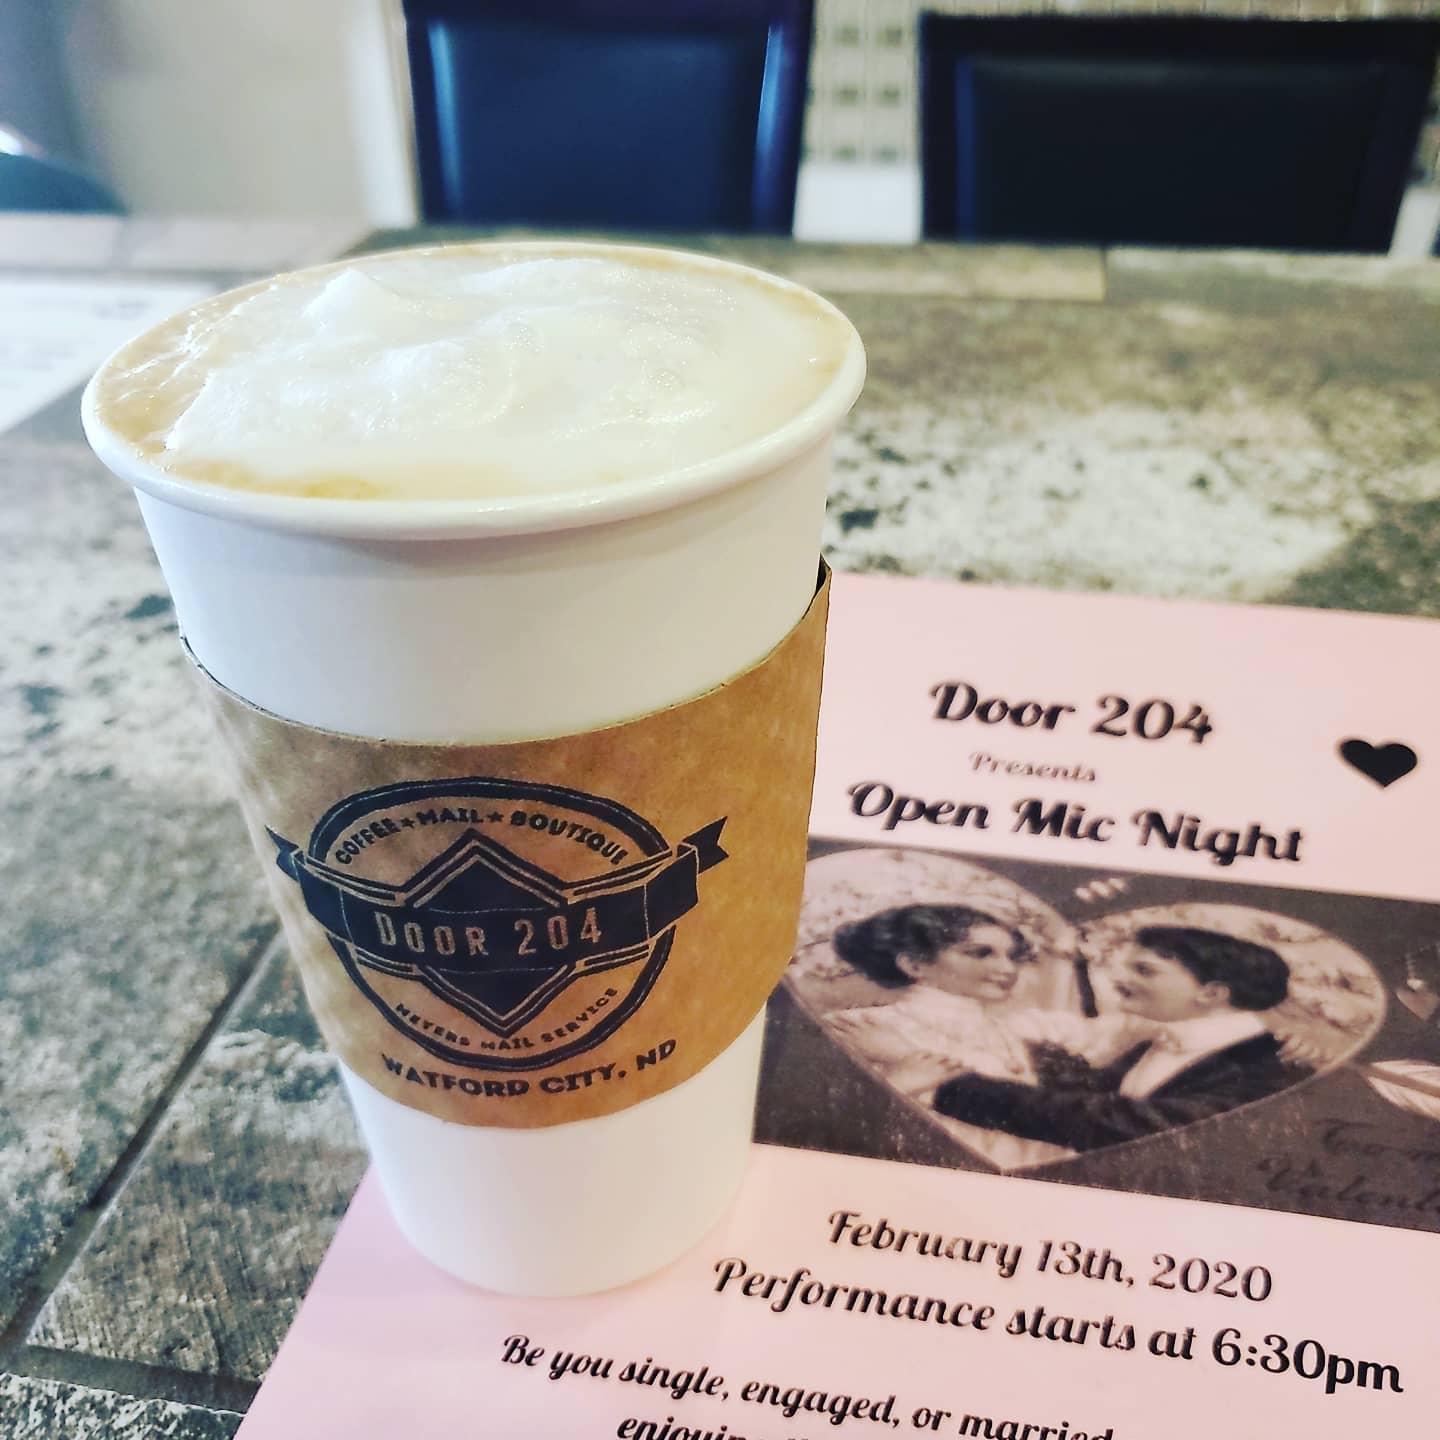 COFFEE★MAIL★BOUTIQUE
DOOR 204
MEYERS MAIL SERVICE
WATFORD CITY, ND
Door 204
Presents
Open Mic Night
February 13th, 2020
Performance starts at 6:30pm
Be you single, engaged, or married